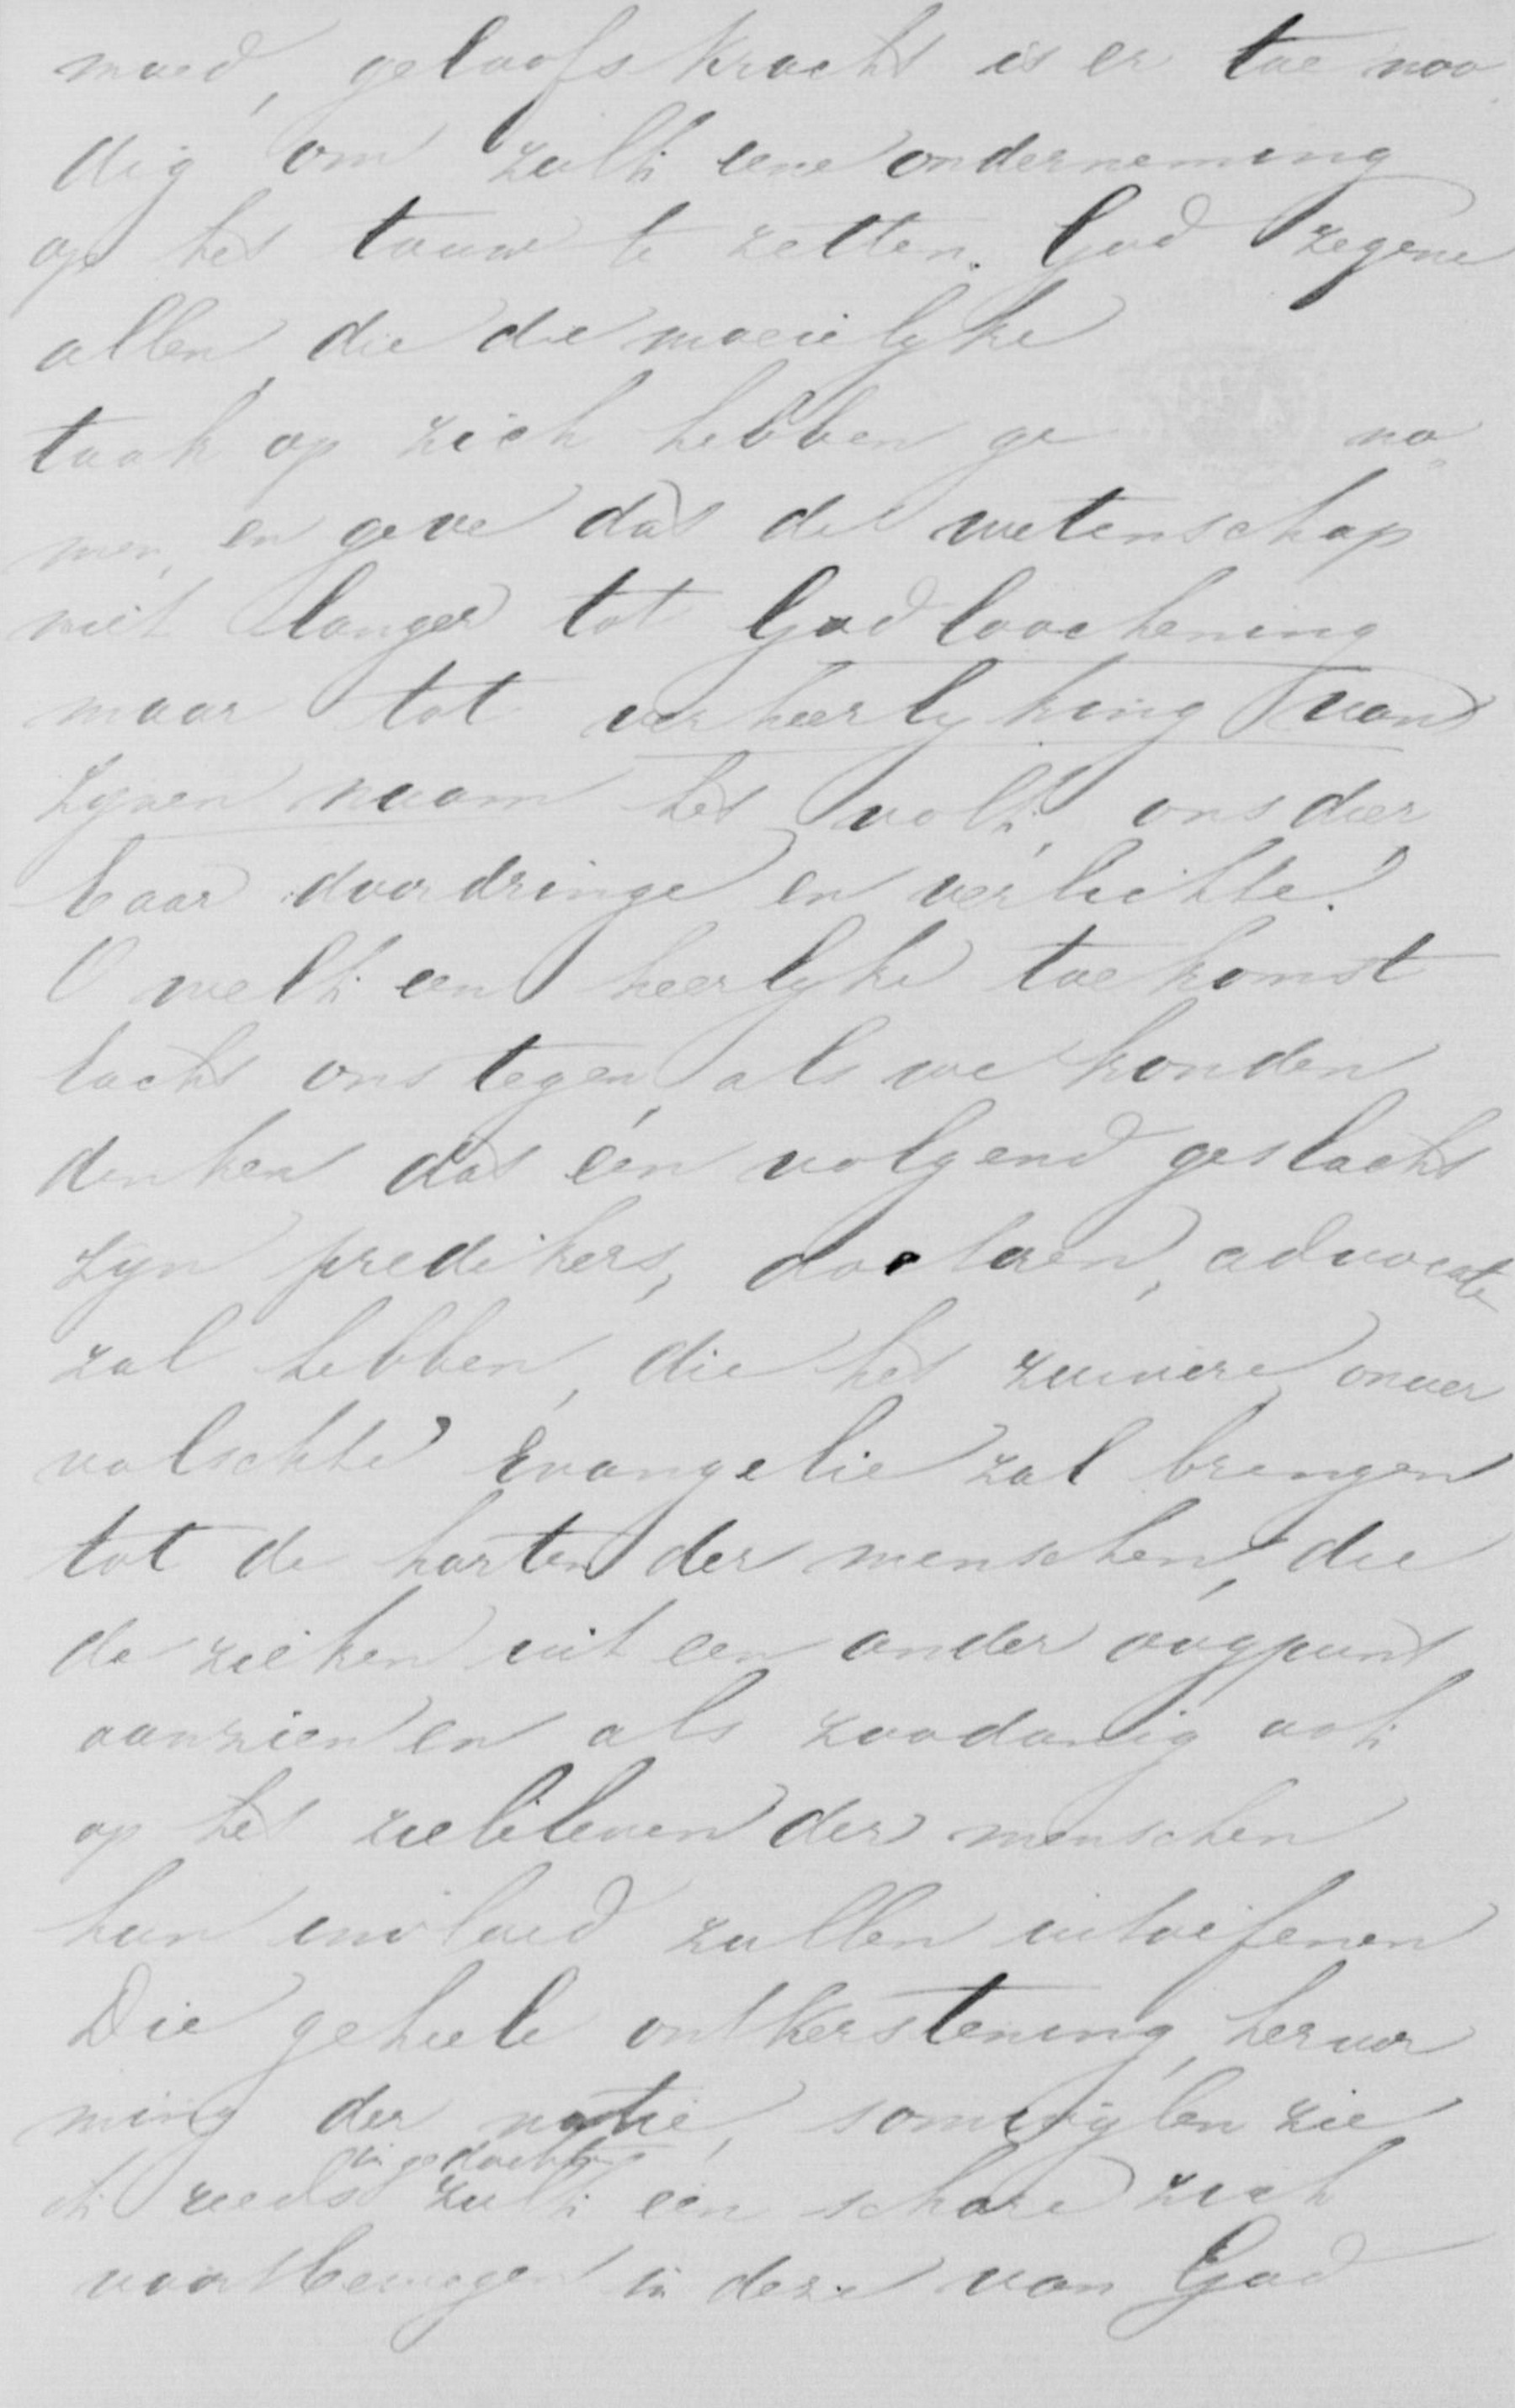 moed, geloofskracht is er toe noo
dig om zulk eene onderneming
op het touw te zetten. God zegene
allen, die die moeielyke
taak op zich hebben ge no
men, en geve dat de wetenschap
niet langer tot Godloochening
maar tot verheerlyking van
Zynen naam het volk, ons dier
baar doordringe en verlichte!
O welk een heerlyke toekomst
lacht ons tegen, als we konden
denken dat één volgend geslacht
zyn predikers, doctoren, advocate
zal hebben, die het zuivere onver
valschte Evangelie zal brengen
tot de harten der menschen, die
de zieken uit een ander oogpunt
aanzien en als zoodanig ook
op het zieleleven der menschen
hun invloed zullen uitoefenen
Die geheele ontkerstening, hervor
ming der natie, somwylen zie
in gedachten
ik reeds zulk een schare zich
voortbewegen in deze van God